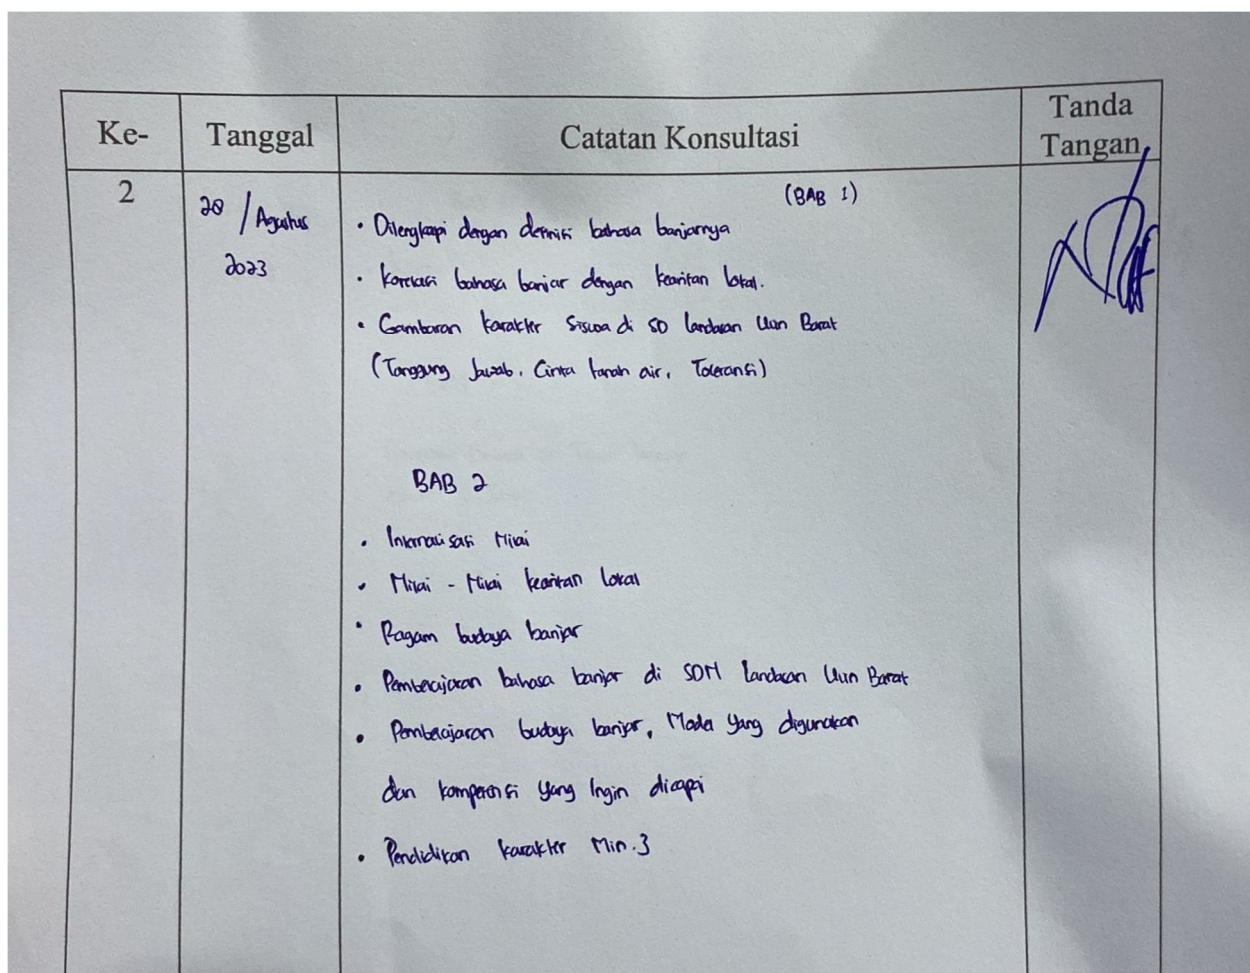 Ke-
Tanggal
Catatan Konsultasi
Tanda
Tangan
2
28 / Agustus
2023
(BAB 1)
• Dilengkapi dengan definisi bahasa banjarnya
• Korelasi bahasa banjar dengan kearifan lokal.
• Gambaran karakter siswa di SD landasan Ulin Barat
(Tanggung Jawab, Cinta tanah air, Toleransi)
BAB 2
• Internalisasi Nilai
• Nilai - Nilai kearifan lokal
• Ragam budaya banjar
• Pembelajaran bahasa banjar di SDN landasan Ulin Barat
• Pembelajaran budaya banjar, yang digunakan
dan kompetensi yang Ingin dicapai
• Pendidikan karakter Min.3